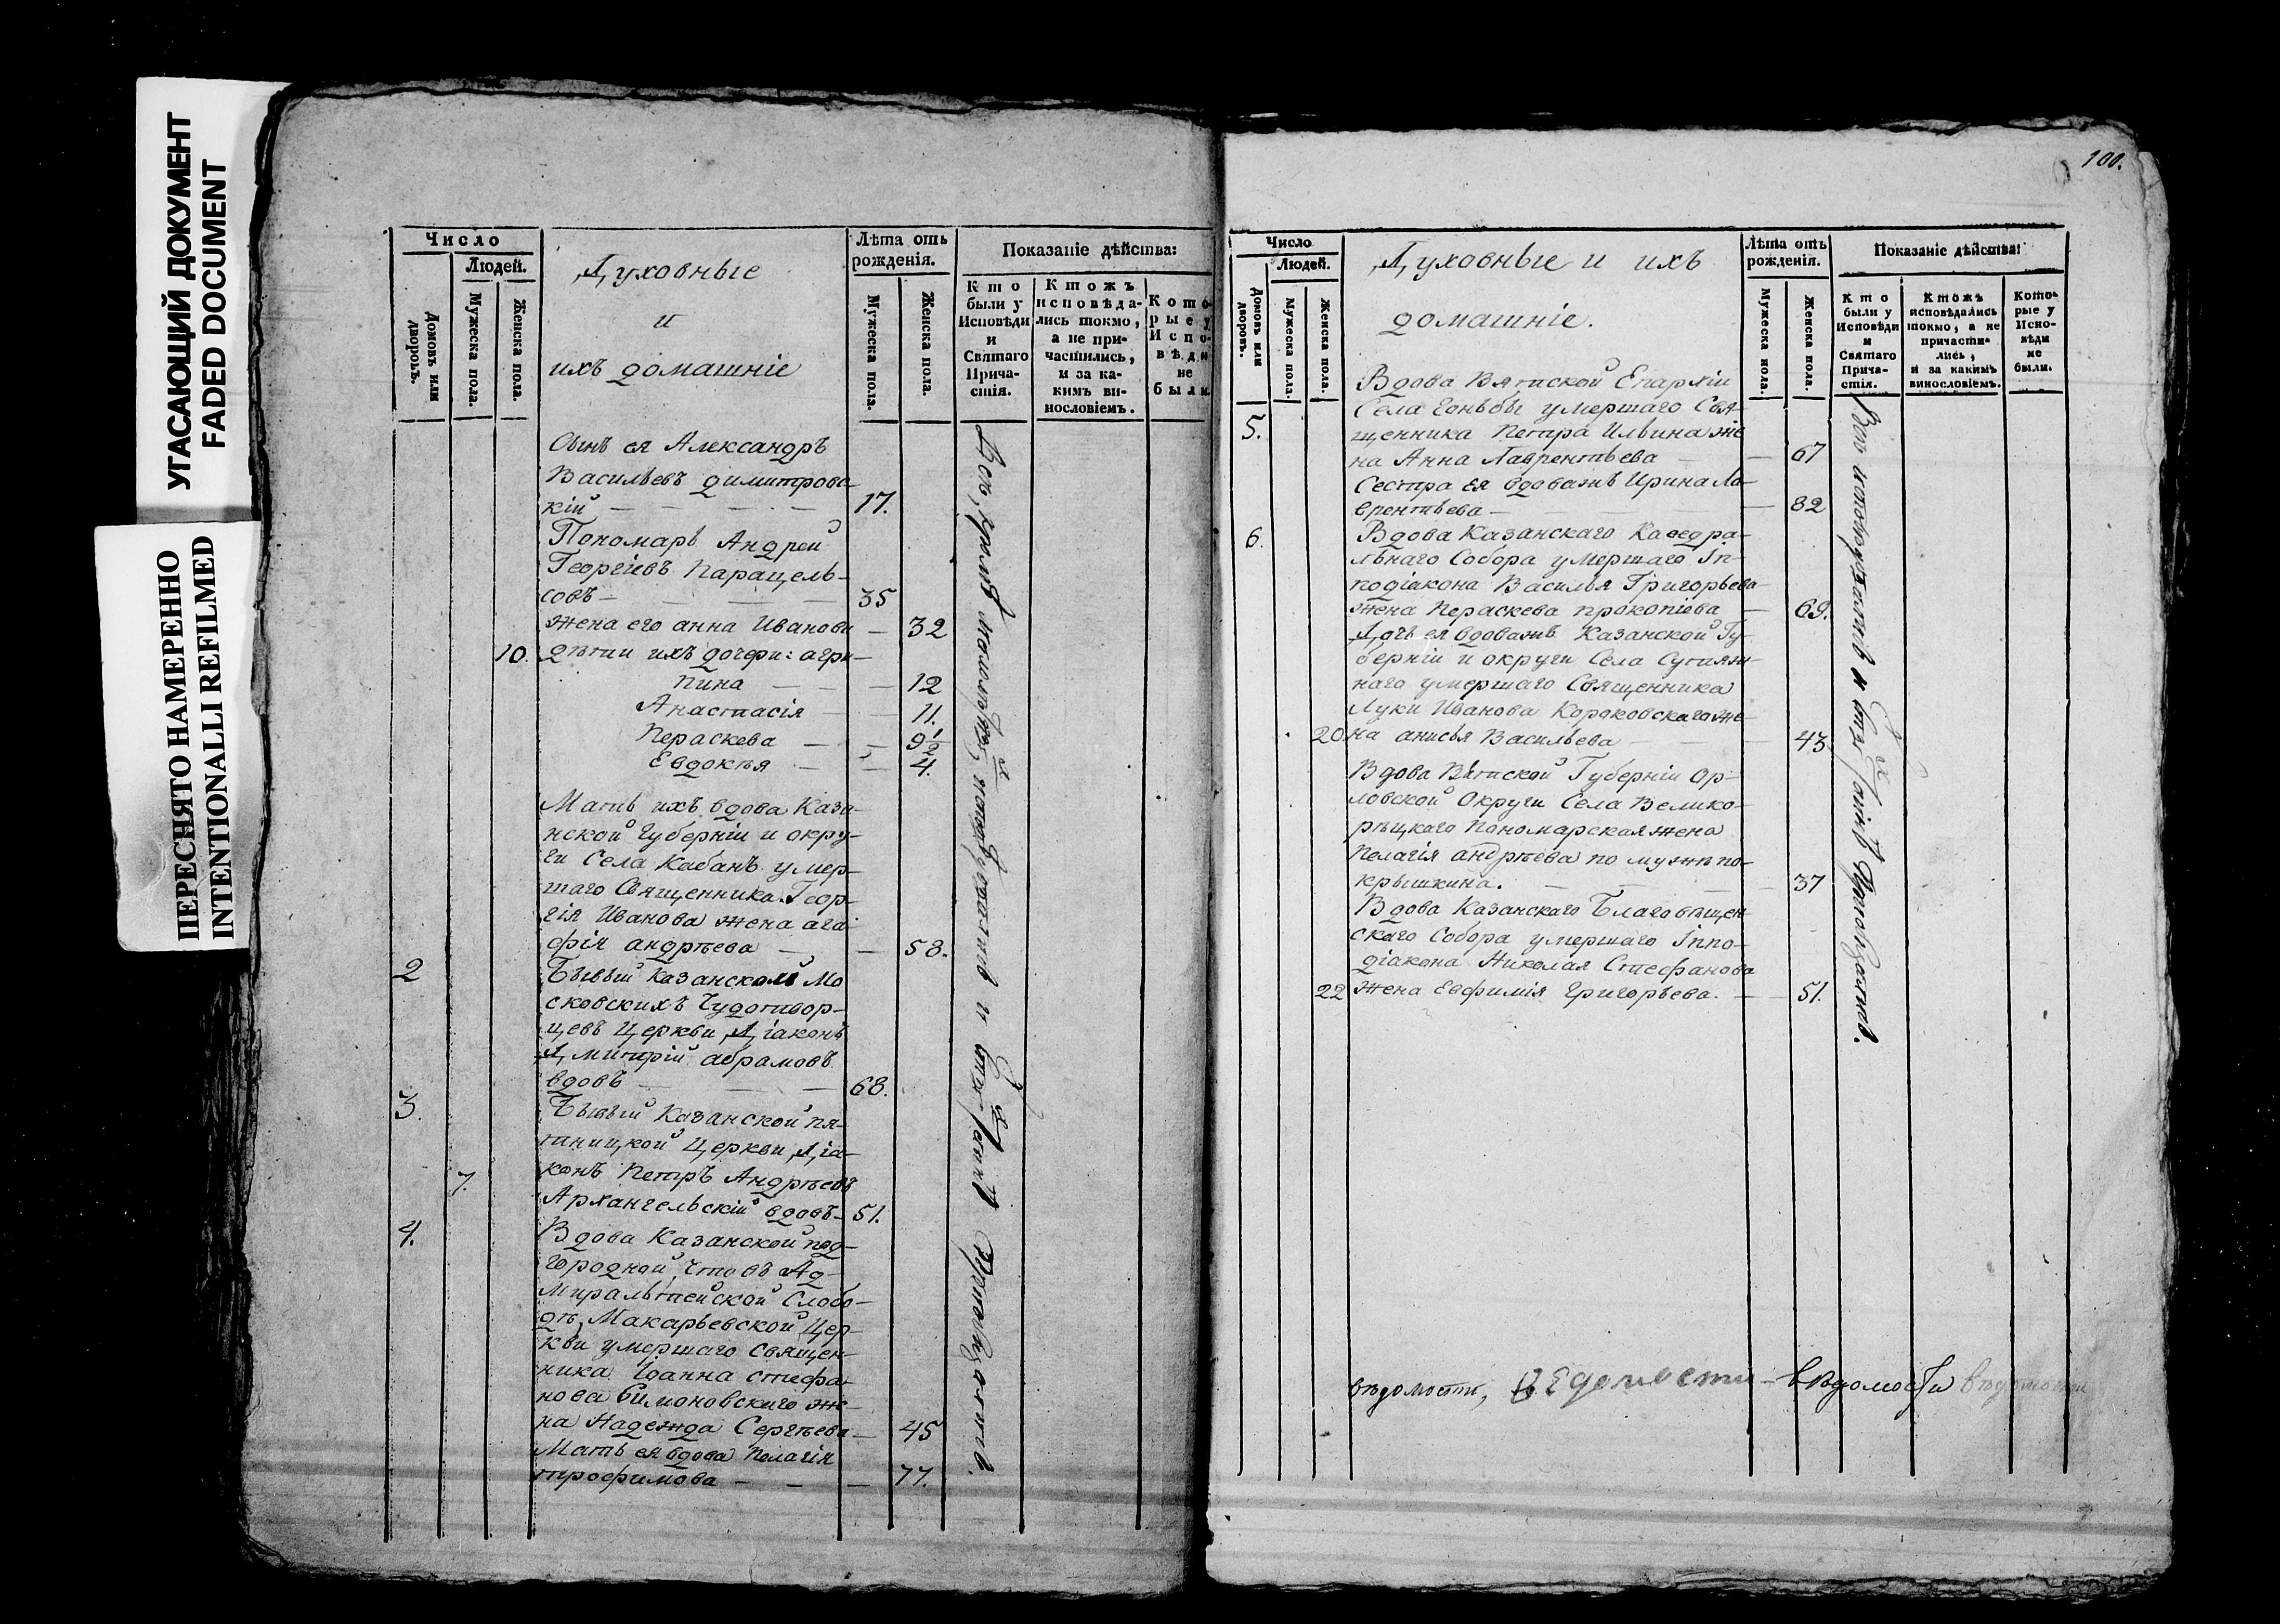 УГАСАЮЩИЙ ДОКУМЕНТ
FADED DOCUMENT
ПЕРЕСНЯТО НАМЕРЕННО
INTENTIONALLI REFILMED
Число
Людей.
Домовъ или дворовъ.
Мужеска пола.
Женска пола.
Духовные
и
ихъ домашнiе
Лѣта отъ
рожденія.
Мужеска пола.
Женска пола.
Показаніе дѣйства:
Кто
были у
Исповѣди
и
Святаго
Прича-
стія.
Ктожъ
исповѣда-
лись токмо,
а не при-
частились,
и за ка-
кимъ ви-
нословіемъ.
Кото-
рые у
Испо-
вѣди
не
были
Сынъ ея Александръ
Васильевъ димитровс
кій — 17.
Пономарь Андрей
Георгіевъ Парацель-
совъ — 35
жена его анна Иванова — 32
10. дѣтии ихъ дочери: агри-
пина — 12
Анастасія — 11.
Пераскева — 9½
Евдокѣя — 4.
Мать ихъ вдова Каза-
нской губерніи и окру-
ги Села Кабанъ умер-
шаго Священника Геор-
гія Иванова жена ага-
фія андрѣева — 58.
2 Бывый Казанской Мо
сковскихъ Чудотвор-
цевъ Церкви Діаконъ
Дмитрій абрамовъ
вдовъ — 68.
3. Бывый Казанской пя-
тницкой Церкви Діа-
7. конъ Петръ Андрѣевъ
Архангельскій вдовъ — 51.
4. Вдова Казанской под-
городной, что въ Ад-
миралтейской Слобо-
дѣ, Макарьевской Цер-
кви умершаго Священ-
ника Іоанна стефа-
нова Симоновскаго же-
на Надежда Сергѣева — 45
Мать ея вдова Пелагія
трофимова — 77.
100.
Число
Людей.
Домовъ или дворовъ.
Мужеска пола.
Женска пола.
Духовные и ихъ
домашніе.
Лѣта отъ
рожденія.
Мужеска пола.
Женска пола.
Показаніе дѣйства:
Кто
были у
Исповѣди
и
Святаго
Прича-
стія.
Ктожъ
исповѣдались
токмо, а не
причасти-
лись,
и за какимъ
винословіемъ.
Кото-
рые у
Испо-
вѣди
не
были.
Вдова Вятской Епархіи
Села Гоньбы умершаго Свя-
5. щенника Петра Ильина же
на Анна Лаврентьева — 67
Сестра ея вдоважъ Ирина Ла-
врентьева — 82
6. Вдова Казанскаго Каѳедра-
льнаго Собора умершаго Іп-
подіакона Василья Григорьева
жена Пераскева прокопіева — 69.
Дочь ея вдоважъ Казанской Гу-
берніи и округи Села
наго умершаго Священника
Луки Иванова же-
20 на анисья Васильева — 43
Вдова Вятской Губерніи Ор-
ловской Округи Села Велико-
рѣцкаго Пономарская жена
Пелагія андрѣева по мужѣ по-
крышкина. — 37
Вдова Казанскаго Благовѣщен
скаго Собора умершаго Іппо-
діакона Николая Стефанова
22 жена Евфимія Григорьева. — 51.
вѣдомости, вЕдомости — вѣдомости вѣдомости